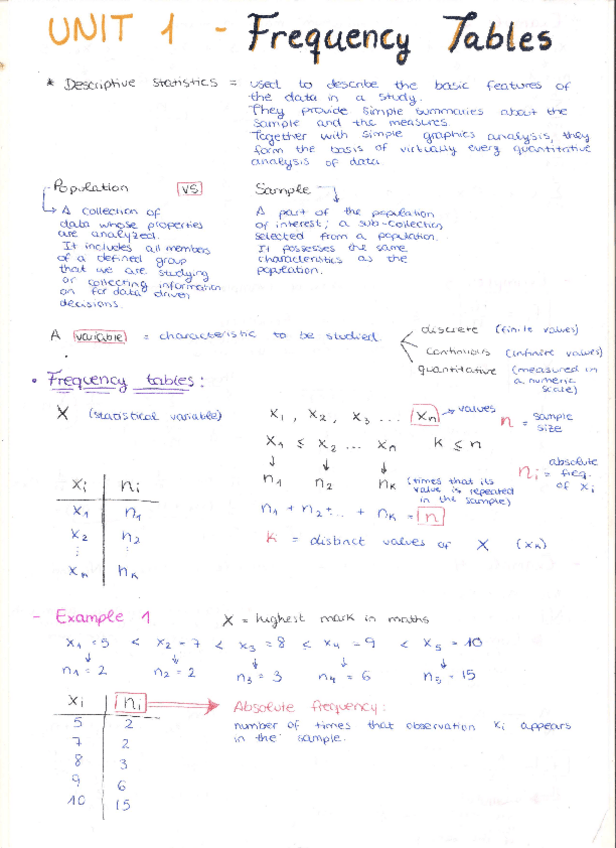 UNIT 1 - Frequency Tables
* Descriptive statistics = used to describe the basic features of
the data in a study.
They provide simple summaries about the
sample and the measures
Together with simple graphics analysis, they
form the basis of virtually every quantitative
analysis of data
Population VS Sample
A collection of
data whose properties
are analyzed.
It includes all members
of a defined group
that we are studying
or collecting information
on for data driven
decisions.
A part of the population
of interest; a sub-collection
selected from a population.
It possesses the same
characteristics as the
population.
A variable = characteristic to be studied
discrete (finite values)
continuous (infinite values)
quantitative (measured in
a numeric
scale)
• Frequency tables:
X (statistical variable)
x1, x2, x3 ... xn → values
n = sample
size
x1 ≤ x2 ... xn k ≤ n
↓ ↓ ↓
n1 n2 nk (times that its
value is repeated
in the sample)
ni = absolute
freq.
of xi
n1 + n2 + ... + nk = n
k = distinct values of X (xk)
xi ni
x1 n1
x2 n2
⋮ ⋮
xk nk
- Example 1 X = highest mark in maths
x1 = 5 < x2 = 7 < x3 = 8 ≤ x4 = 9 < x5 = 10
↓ ↓ ↓ ↓ ↓
n1 = 2 n2 = 2 n3 = 3 n4 = 6 n5 = 15
xi ni
5 2
7 2
8 3
9 6
10 15
Absolute frequency:
number of times that observation xi appears
in the sample.